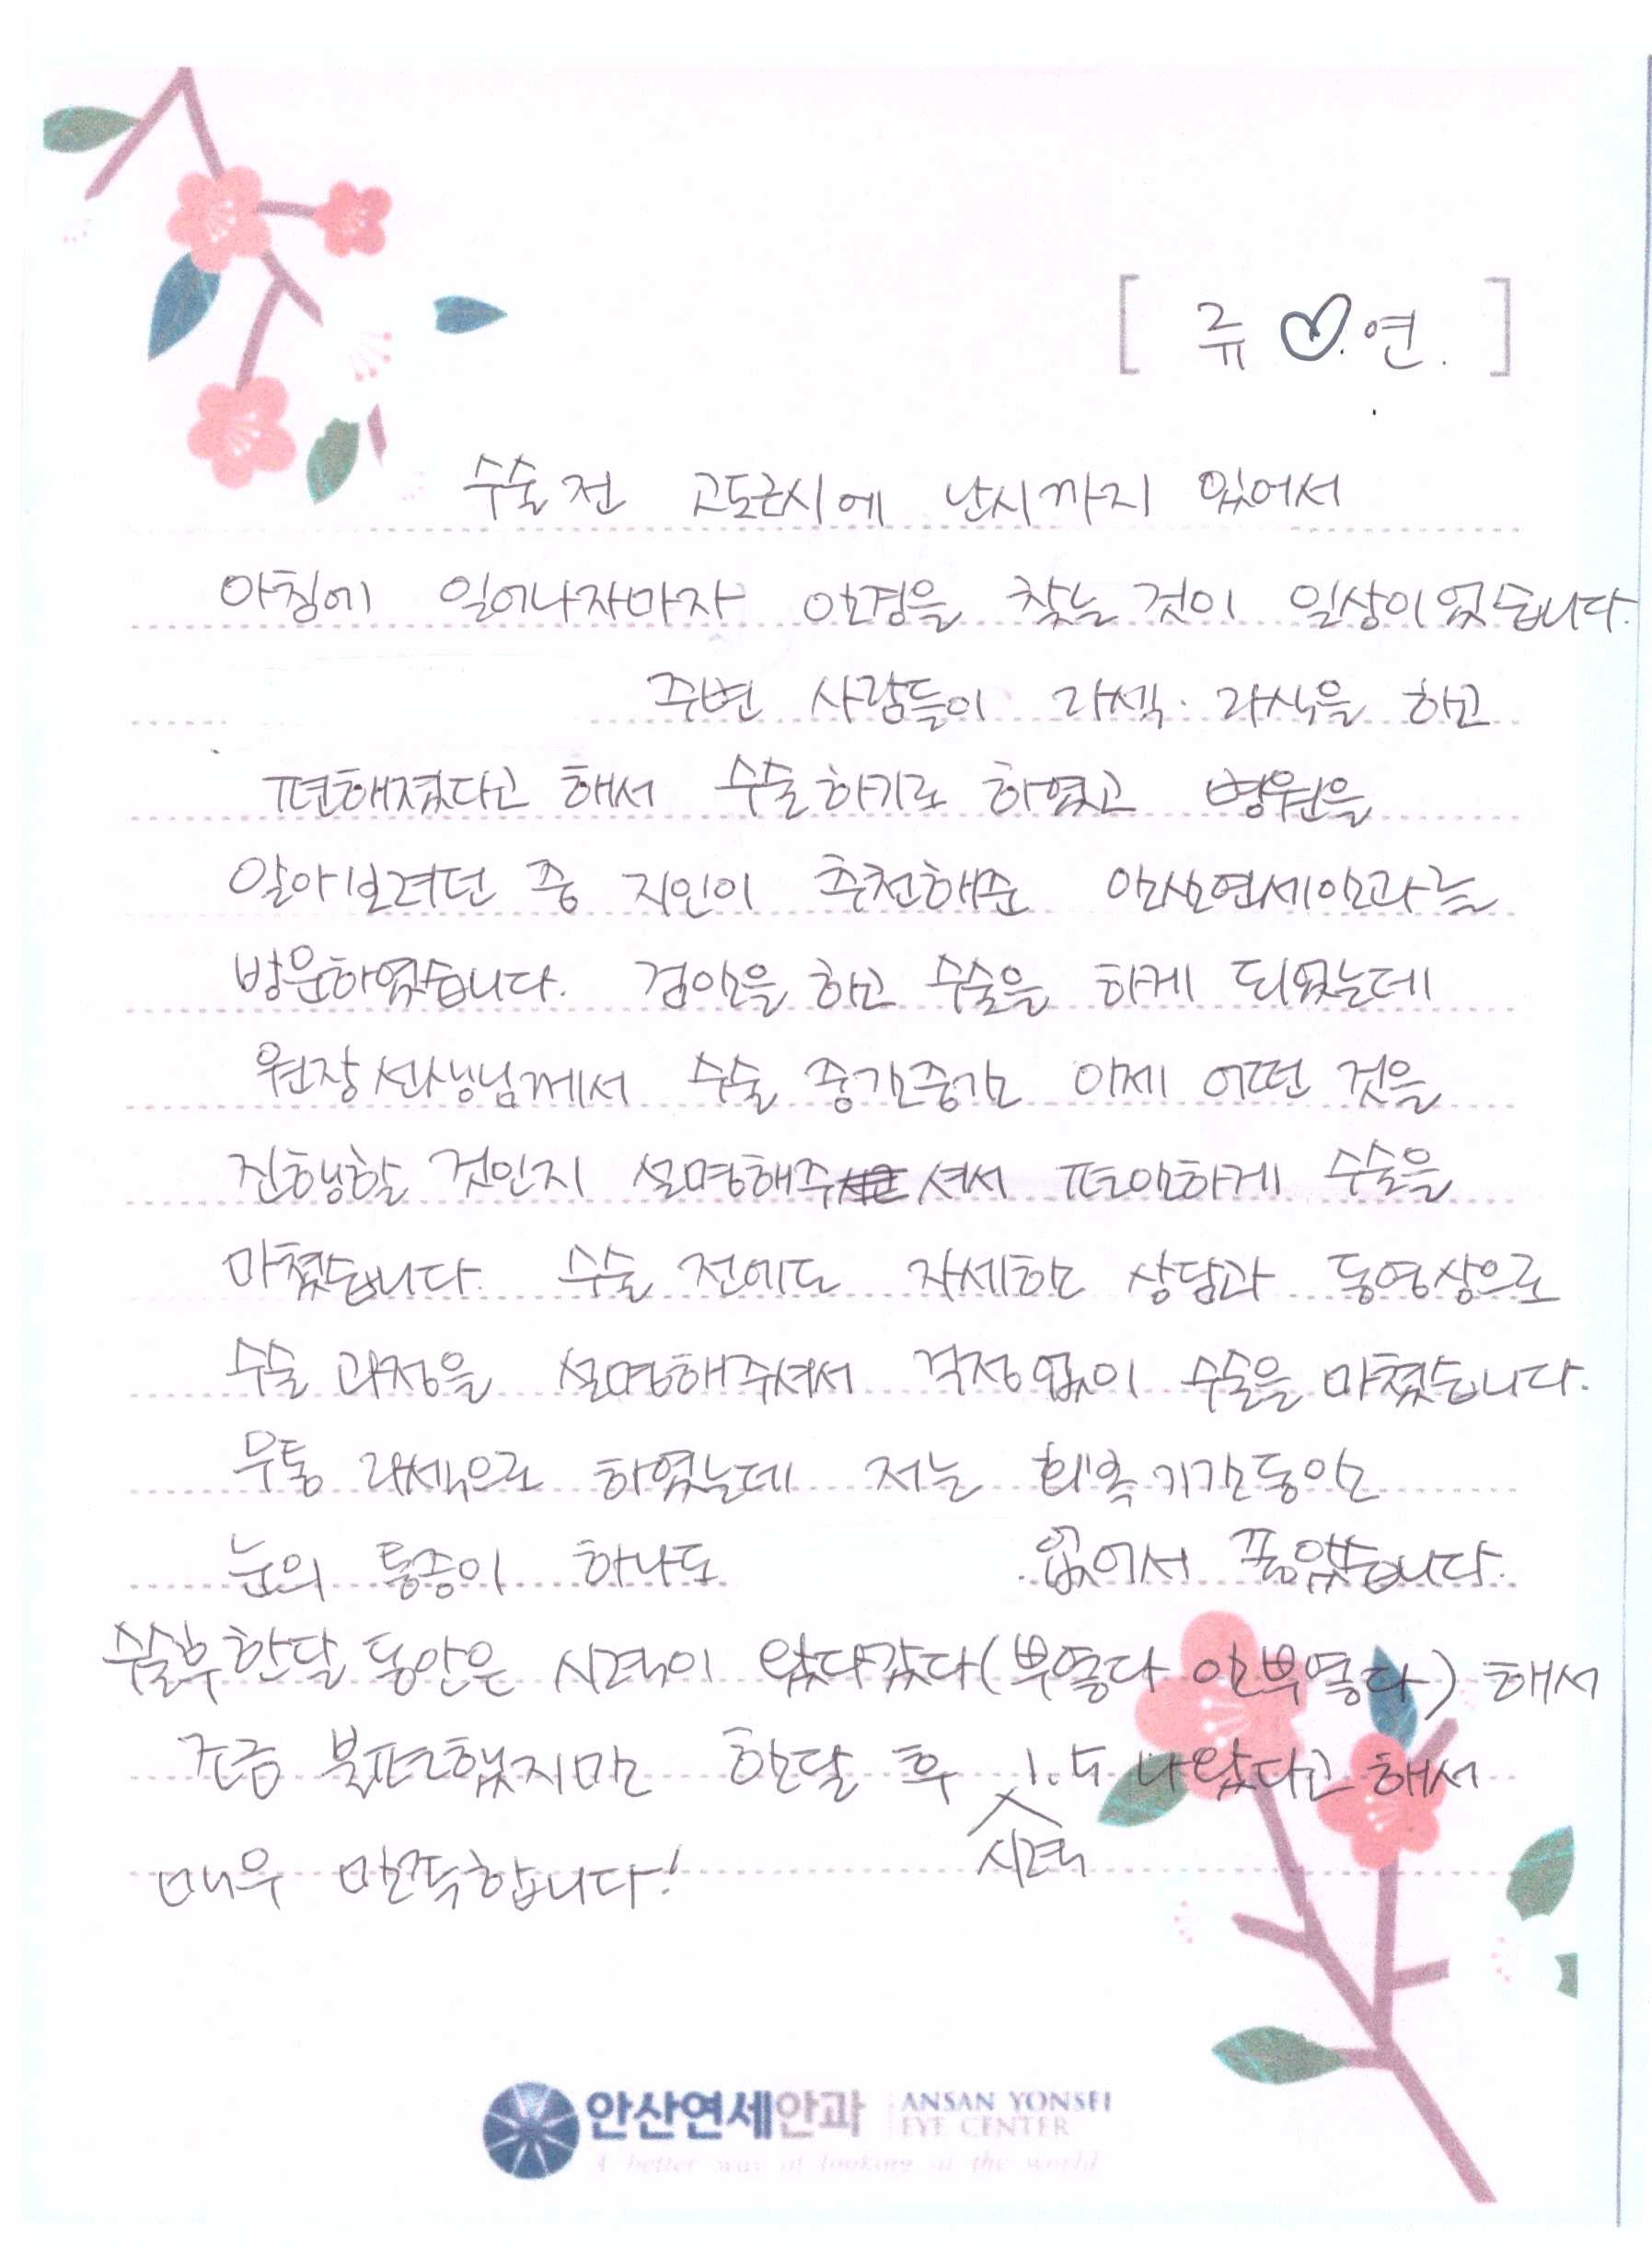 [ 류 ♡ 연. ]
수술 전 고도근시에 난시까지 있어서
아침에 일어나자마자 안경을 찾는 것이 일상이었습니다.
주변 사람들이 라섹·라식을 하고
편해졌다고 해서 수술하기로 하였고 병원을
알아보려던 중 지인이 추천해준 안산연세안과를
방문하였습니다. 검안을 하고 수술을 하게 되었는데
원장선생님께서 수술 중간중간 이제 어떤 것을
진행할 것인지 설명해주셔서 편안하게 수술을
마쳤습니다. 수술 전에도 자세한 상담과 동영상으로
수술 과정을 설명해주셔서 걱정없이 수술을 마쳤습니다.
무통 라섹으로 하였는데 저는 회복기간동안
눈의 통증이 하나도 없어서 좋았습니다.
수술후 한달 동안은 시력이 왔다갔다(뿌옇다 안뿌옇다) 해서
조금 불편했지만 한달 후 시력 1.5 나왔다고 해서
매우 만족합니다!
안산연세안과 ANSAN YONSEI
EYE CENTER
A better way of looking at the world